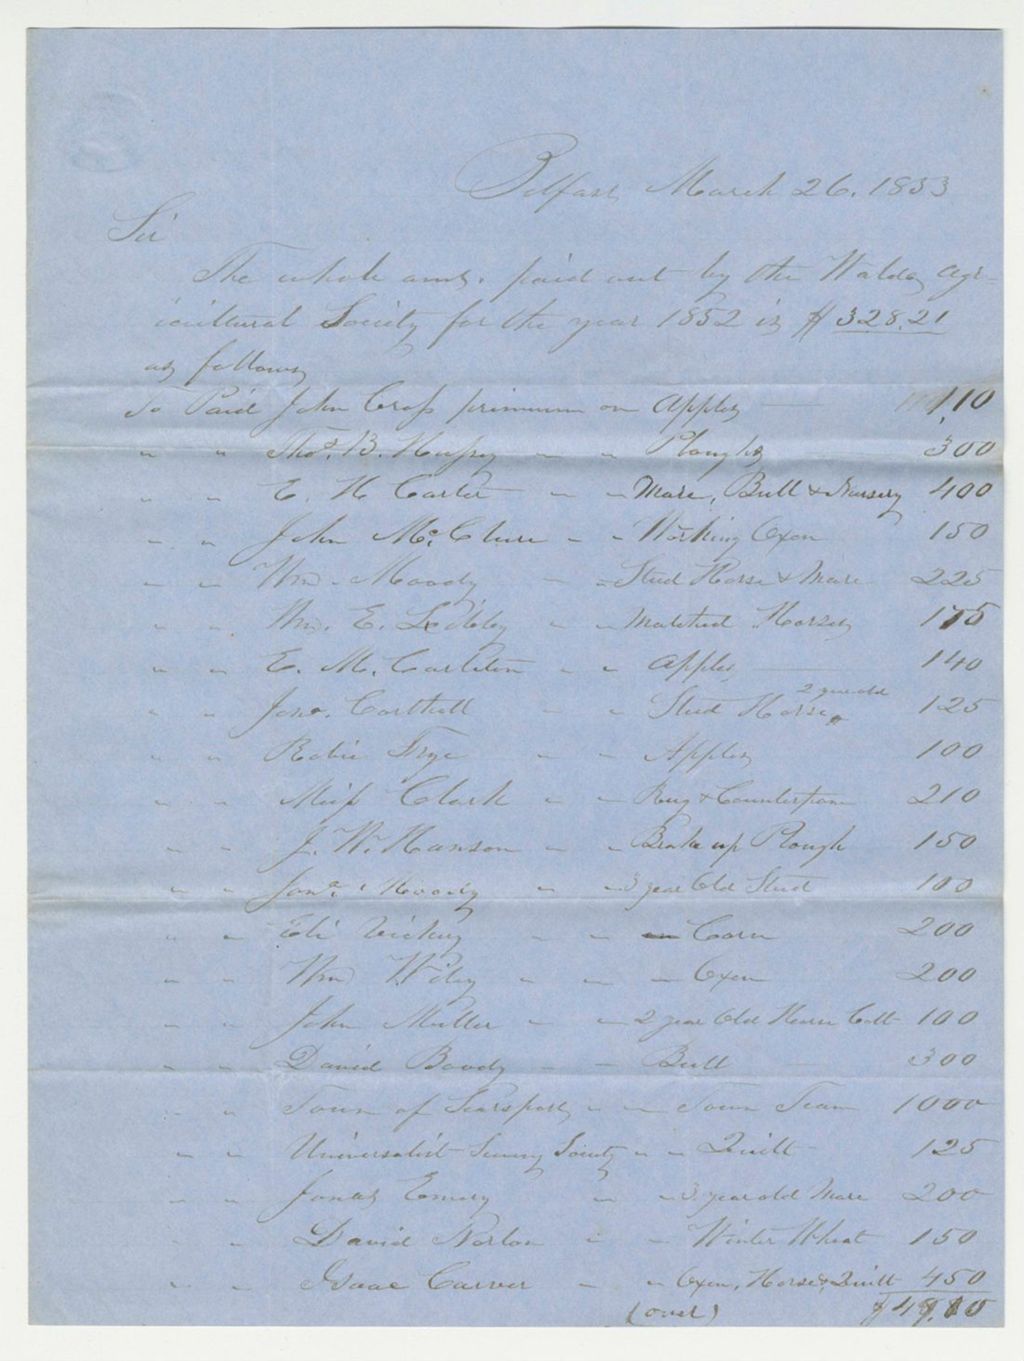 Belfast March 26. 1853
Sir
The whole amt. paid out by the Waldo Agr-
icultural Society for the year 1852 is $328.21
as follows
To Paid John Cross primium on Apples 1,10
" " Thos. B. Hussey " " Ploughs 300
" " E. H. Carter " " Mare, Bull & Nursery 400
" " John McClure " " Working Oxen 150
" " Wm. Moody " " Stud Horse & Mare 225
" " Wm. E. Libbey " " Matched Horses 175
" " E. M. Carleton " " Apples 140
" " Jona. Carthell " " Stud Horse 2 year old 125
" " Robie Frye " " Apples 100
" " Miss Clark " " Rug & Counterpane 210
" " J. W. Hanson " " Brake up Plough 150
" " Jona. Moody " " 3 year Old Stud 100
" " Eli Vickery " " Corn 200
" " Wm " " " Oxen 200
" " John " " 2 year Old Horse Colt 100
" " David Boody " " Bull 300
" " Town of Searsport " " Town Team 1000
" " Universalist Sewing Society " " Quilt 125
" " Jonas Emery " " 3 year old Mare 200
" " David Norton " " Winter Wheat 150
" " Isaac Carver " " Oxen, Horse & Quilt 450
(over) $49.10